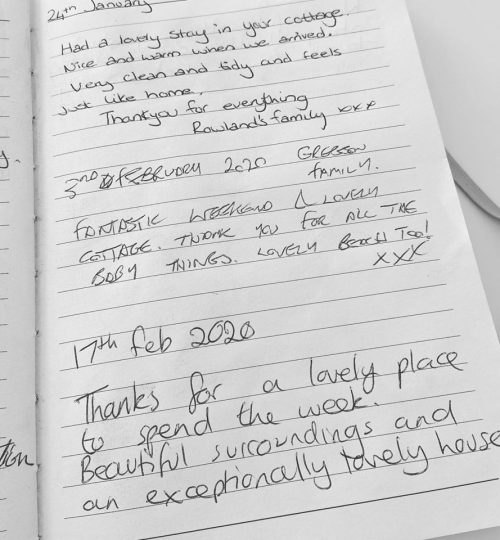 24th January
Had a lovely stay in your cottage.
Nice and warm when we arrived.
Very clean and tidy and feels
Just like home.
Thankyou for everything
Rowland's family xxx
y.
3RD FEBRUARY 2020
FAMILY.
FANTASTIC WEEKEND & LOVELY
COTTAGE. THANK YOU FOR ALL THE
BABY THINGS. LOVELY BEACH TOO!
XXX
17th feb 2020
Thanks for a lovely place
to spend the week.
Beautiful surroundings and
an exceptionally lovely house